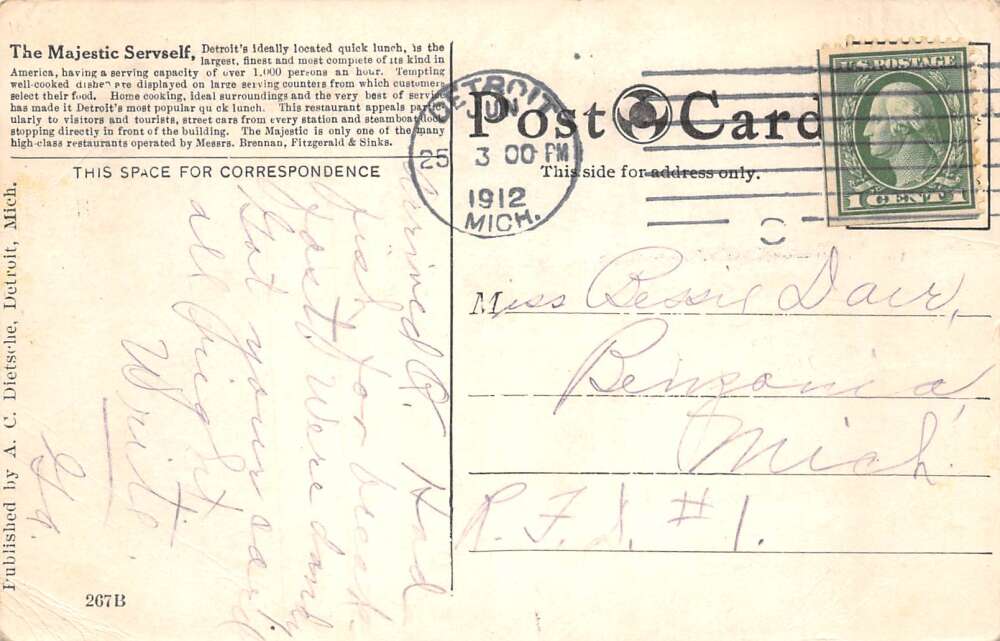 The Majestic Servself, Detroit's ideally located quick lunch, is the
largest, finest and most complete of its kind in
America, having a serving capacity of over 1,000 persons an hour. Tempting
well-cooked dishes are displayed on large serving counters from which customers
select their food. Home cooking, ideal surroundings and the very best of service
has made it Detroit's most popular quick lunch. This restaurant appeals partic-
ularly to visitors and tourists, street cars from every station and steamboat dock
stopping directly in front of the building. The Majestic is only one of the many
high-class restaurants operated by Messrs. Brennan, Fitzgerald & Sinks.
THIS SPACE FOR CORRESPONDENCE
Arrived O.K. Had
fish for break-
fast, were dandy
Got your card
all right.
Write
Published by A. C. Dietsche, Detroit, Mich.
267B
Post Card
This side for address only.
DETROIT
JUN
25
3 00 PM
1912
MICH.
U.S. POSTAGE
1 CENT 1
Miss Bessie Dair,
Benzonia,
Mich.
R.F.D. #1.